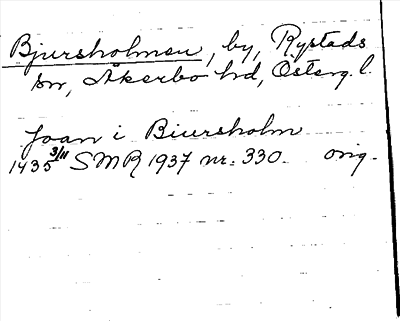 Bjursholmen, by, Rystads
sn, Åkerbo hd, Österg. l.
Joan i Biursholm
1435 3/11 SMR 1937 nr. 330. orig.